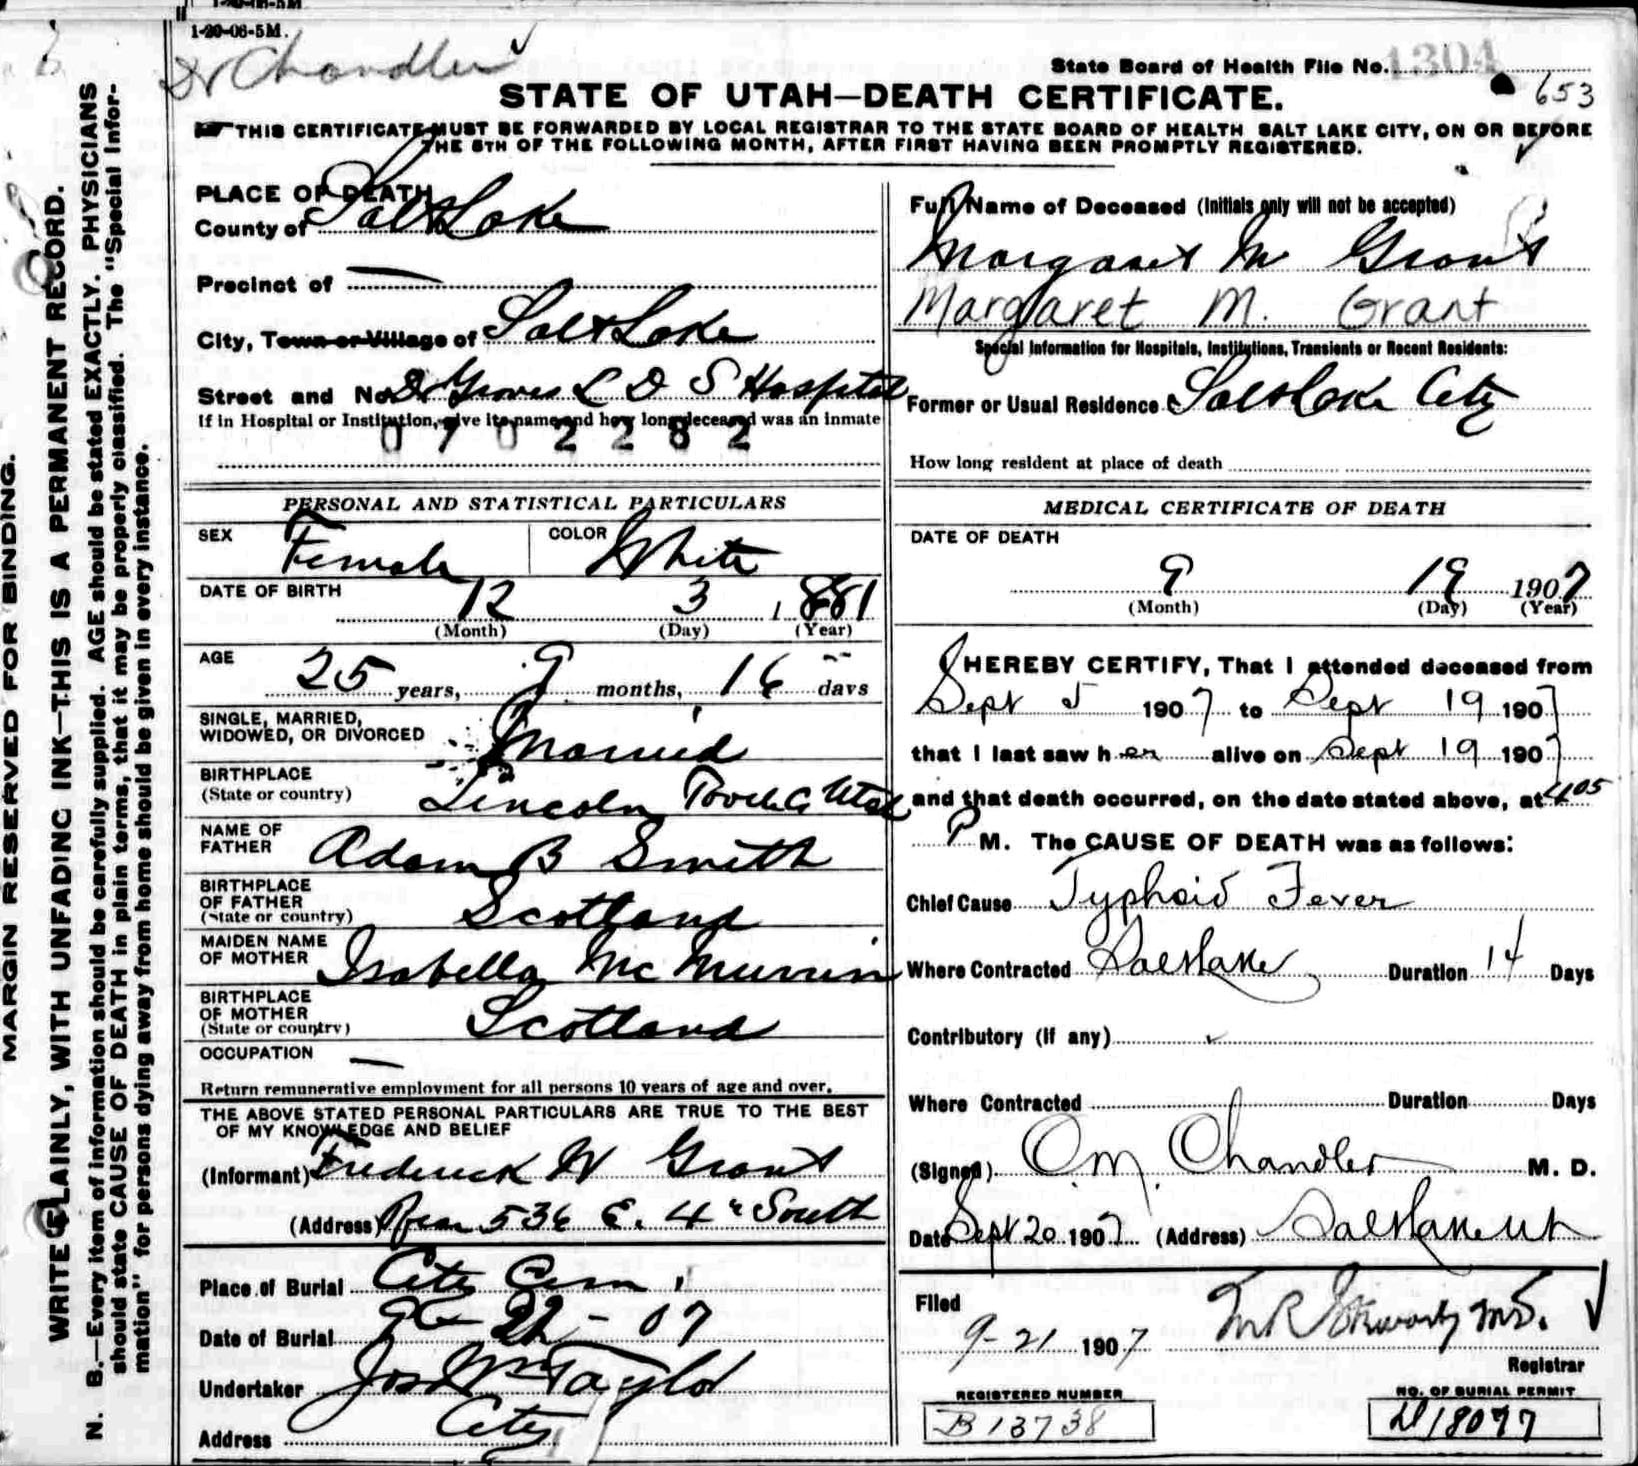 1-20-06-5M.
Dr Chandler
State Board of Health File No. 1304
653
STATE OF UTAH—DEATH CERTIFICATE.
THIS CERTIFICATE MUST BE FORWARDED BY LOCAL REGISTRAR TO THE STATE BOARD OF HEALTH SALT LAKE CITY, ON OR BEFORE
THE 5TH OF THE FOLLOWING MONTH, AFTER FIRST HAVING BEEN PROMPTLY REGISTERED.
MARGIN RESERVED FOR BINDING.
WRITE PLAINLY, WITH UNFADING INK—THIS IS A PERMANENT RECORD.
N. B.—Every item of information should be carefully supplied. AGE should be stated EXACTLY. PHYSICIANS
should state CAUSE OF DEATH in plain terms, that it may be properly classified. The "Special Infor-
mation" for persons dying away from home should be given in every instance.
PLACE OF DEATH
County of Salt Lake
Precinct of —
City, Town or Village of Salt Lake
Street and No. Dr Groves L D S Hospital
If in Hospital or Institution, give its name and how long deceased was an inmate
0702282
PERSONAL AND STATISTICAL PARTICULARS
SEX Female COLOR White
DATE OF BIRTH 12 3 1881
(Month) (Day) (Year)
AGE 25 years, 9 months, 16 days
SINGLE, MARRIED,
WIDOWED, OR DIVORCED Married
BIRTHPLACE
(State or country) Lincoln Tooele Co Utah
NAME OF
FATHER Adam B Smith
BIRTHPLACE
OF FATHER
(State or country) Scotland
MAIDEN NAME
OF MOTHER Isabella Mc Murrin
BIRTHPLACE
OF MOTHER
(State or country) Scotland
OCCUPATION —
Return remunerative employment for all persons 10 years of age and over.
THE ABOVE STATED PERSONAL PARTICULARS ARE TRUE TO THE BEST
OF MY KNOWLEDGE AND BELIEF
(Informant) Frederick W Grant
(Address) Rear 536 E. 4" South
Place of Burial City Cem
Date of Burial 9 22 - 07
Undertaker Jos Wm Taylor
Address City
Full Name of Deceased (Initials only will not be accepted)
Margaret M Grant
Margaret M. Grant
Special Information for Hospitals, Institutions, Transients or Recent Residents:
Former or Usual Residence Salt Lake City
How long resident at place of death
MEDICAL CERTIFICATE OF DEATH
DATE OF DEATH
9 19 1907
(Month) (Day) (Year)
I HEREBY CERTIFY, That I attended deceased from
Sept 5 1907 to Sept 19 1907
that I last saw her alive on Sept 19 1907
and that death occurred, on the date stated above, at 4 05
P M. The CAUSE OF DEATH was as follows:
Chief Cause Typhoid Fever
Where Contracted Salt Lake Duration 14 Days
Contributory (if any)
Where Contracted Duration Days
(Signed) O.M. Chandler M. D.
Date Sept 20 1907 (Address) Salt Lake Ut
Filed
9-21 1907 M.D.
Registrar
REGISTERED NUMBER
B 13738
NO. OF BURIAL PERMIT
D 18077